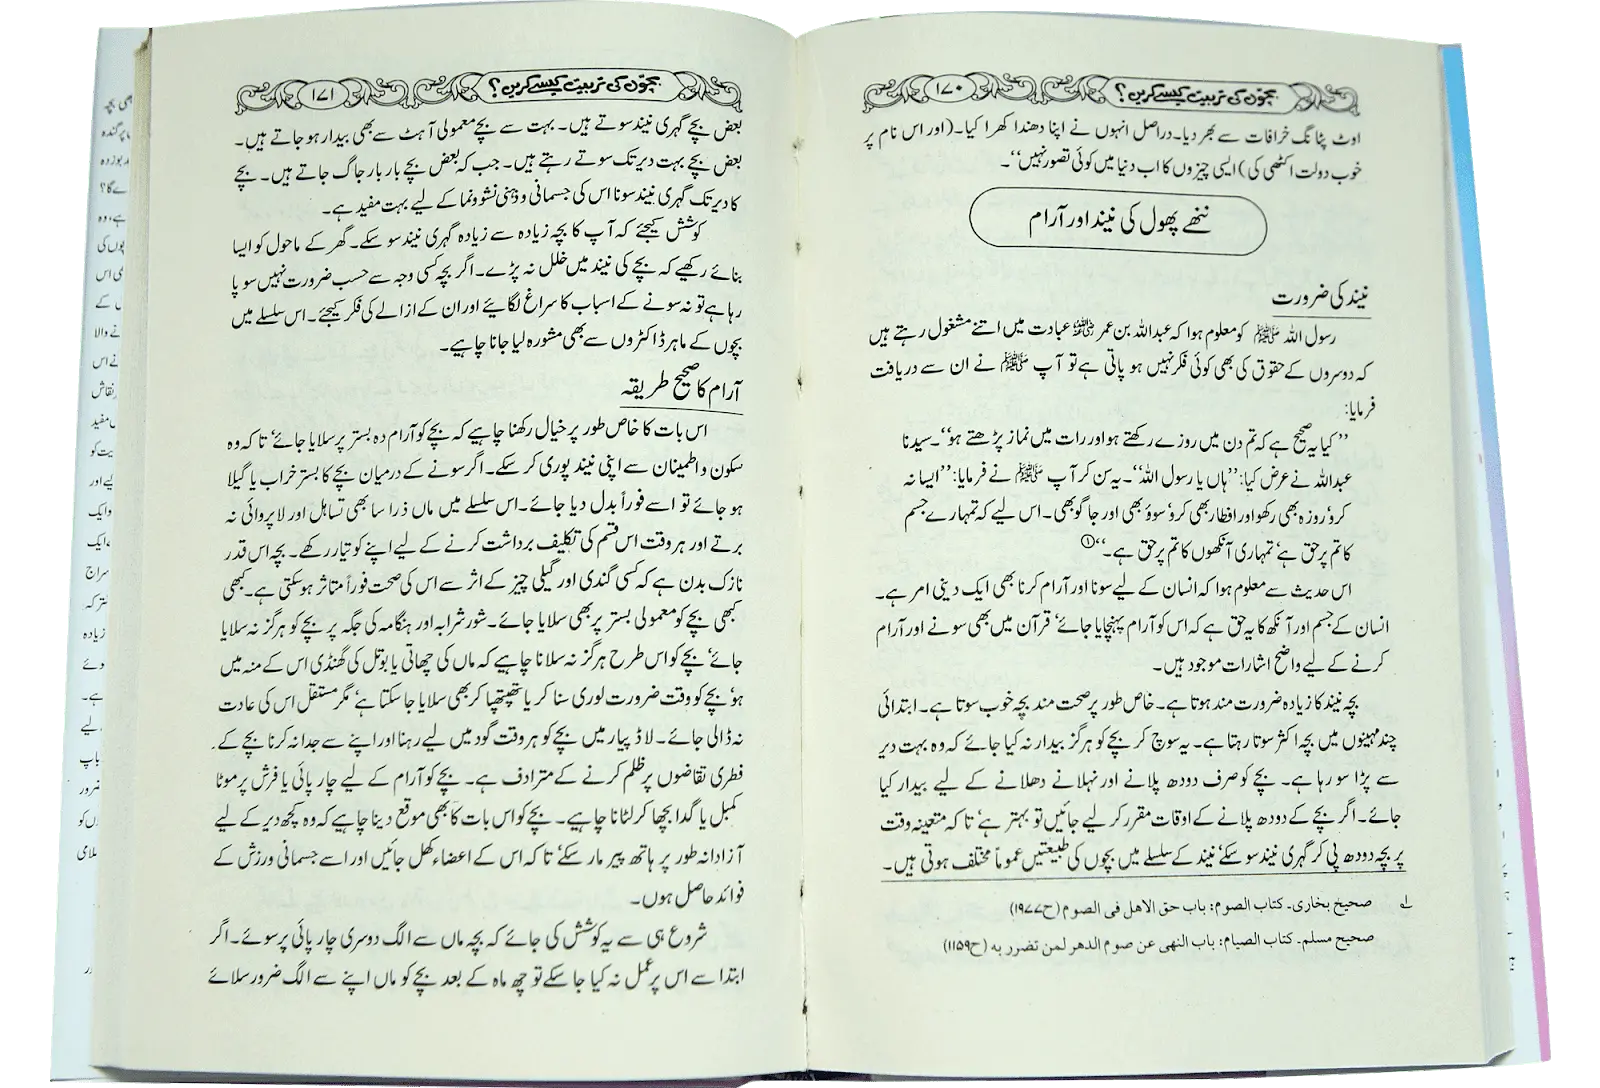 بچوں کی تربیت کیسے کریں؟ ۱۷۰
اوٹ پٹانگ خرافات سے بھر دیا۔ دراصل انہوں نے اپنا دھندا کھرا کیا۔ (اور اس نام پر
خوب دولت اکٹھی کی) ایسی چیزوں کا اب دنیا میں کوئی تصور نہیں‘‘۔
ننھے پھول کی نیند اور آرام
نیند کی ضرورت
رسول اللہ ﷺ کو معلوم ہوا کہ عبداللہ بن عمر عبادت میں اتنے مشغول رہتے ہیں
کہ دوسروں کے حقوق کی بھی کوئی فکر نہیں ہو پاتی ہے تو آپ ﷺ نے ان سے دریافت
فرمایا:
’’کیا یہ صحیح ہے کہ تم دن میں روزے رکھتے ہو اور رات میں نماز پڑھتے ہو‘‘۔ سیدنا
عبداللہ نے عرض کیا: ’’ہاں یا رسول اللہ‘‘۔ یہ سن کر آپ ﷺ نے فرمایا: ’’ایسا نہ
کرو‘ روزہ بھی رکھو اور افطار بھی کرو‘ سوؤ بھی اور جاگو بھی۔ اس لیے کہ تمہارے جسم
کا تم پر حق ہے‘ تمہاری آنکھوں کا تم پر حق ہے۔‘‘①
اس حدیث سے معلوم ہوا کہ انسان کے لیے سونا اور آرام کرنا بھی ایک دینی امر ہے۔
انسان کے جسم اور آنکھ کا یہ حق ہے کہ اس کو آرام پہنچایا جائے‘ قرآن میں بھی سونے اور آرام
کرنے کے لیے واضح اشارات موجود ہیں۔
بچہ نیند کا زیادہ ضرورت مند ہوتا ہے۔ خاص طور پر صحت مند بچہ خوب سوتا ہے۔ ابتدائی
چند مہینوں میں بچہ اکثر سوتا رہتا ہے۔ یہ سوچ کر بچے کو ہرگز بیدار نہ کیا جائے کہ وہ بہت دیر
سے پڑا سو رہا ہے۔ بچے کو صرف دودھ پلانے اور نہلانے دھلانے کے لیے بیدار کیا
جائے۔ اگر بچے کے دودھ پلانے کے اوقات مقرر کر لیے جائیں تو بہتر ہے‘ تاکہ متعینہ وقت
پر بچہ دودھ پی کر گہری نیند سو سکے‘ نیند کے سلسلے میں بچوں کی طبیعتیں عموماً مختلف ہوتی ہیں۔
۱؎ صحیح بخاری۔ کتاب الصوم: باب حق الاهل فی الصوم (ح۱۹۷۷)
صحیح مسلم۔ کتاب الصیام: باب النهی عن صوم الدهر لمن تضرر به (ح۱۱۵۹)
بچوں کی تربیت کیسے کریں؟ ۱۷۱
بعض بچے گہری نیند سوتے ہیں۔ بہت سے بچے معمولی آہٹ سے بھی بیدار ہو جاتے ہیں۔
بعض بچے بہت دیر تک سوتے رہتے ہیں۔ جب کہ بعض بچے بار بار جاگ جاتے ہیں۔ بچے
کا دیر تک گہری نیند سونا اس کی جسمانی و ذہنی نشوونما کے لیے بہت مفید ہے۔
کوشش کیجئے کہ آپ کا بچہ زیادہ سے زیادہ گہری نیند سو سکے۔ گھر کے ماحول کو ایسا
بنائے رکھیے کہ بچے کی نیند میں خلل نہ پڑے۔ اگر بچہ کسی وجہ سے حسب ضرورت نہیں سو پا
رہا ہے تو نہ سونے کے اسباب کا سراغ لگائیے اور ان کے ازالے کی فکر کیجئے۔ اس سلسلے میں
بچوں کے ماہر ڈاکٹروں سے بھی مشورہ لیا جانا چاہیے۔
آرام کا صحیح طریقہ
اس بات کا خاص طور پر خیال رکھنا چاہیے کہ بچے کو آرام دہ بستر پر سلایا جائے‘ تاکہ وہ
سکون و اطمینان سے اپنی نیند پوری کر سکے۔ اگر سونے کے درمیان بچے کا بستر خراب یا گیلا
ہو جائے تو اسے فوراً بدل دیا جائے۔ اس سلسلے میں ماں ذرا سا بھی تساہل اور لاپروائی نہ
برتے اور ہر وقت اس قسم کی تکلیف برداشت کرنے کے لیے اپنے کو تیار رکھے۔ بچہ اس قدر
نازک بدن ہے کہ کسی گندی اور گیلی چیز کے اثر سے اس کی صحت فوراً متاثر ہو سکتی ہے۔ کبھی
کبھی بچے کو معمولی بستر پر بھی سلایا جائے۔ شور شرابہ اور ہنگامہ کی جگہ پر بچے کو ہرگز نہ سلایا
جائے‘ بچے کو اس طرح ہرگز نہ سلانا چاہیے کہ ماں کی چھاتی یا بوتل کی گھنڈی اس کے منہ میں
ہو‘ بچے کو وقت ضرورت لوری سنا کر یا تھپتھپا کر بھی سلایا جا سکتا ہے‘ مگر مستقل اس کی عادت
نہ ڈالی جائے۔ لاڈ پیار میں بچے کو ہر وقت گود میں لیے رہنا اور اپنے سے جدا نہ کرنا بچے کے
فطری تقاضوں پر ظلم کرنے کے مترادف ہے۔ بچے کو آرام کے لیے چارپائی یا فرش پر موٹا
کمبل یا گدا بچھا کر لٹانا چاہیے۔ بچے کو اس بات کا بھی موقع دینا چاہیے کہ وہ کچھ دیر کے لیے
آزادانہ طور پر ہاتھ پیر مار سکے‘ تاکہ اس کے اعضاء کھل جائیں اور اسے جسمانی ورزش کے
فوائد حاصل ہوں۔
شروع ہی سے یہ کوشش کی جائے کہ بچہ ماں سے الگ دوسری چارپائی پر سوئے۔ اگر
ابتدا سے اس پر عمل نہ کیا جا سکے تو چھ ماہ کے بعد بچے کو ماں اپنے سے الگ ضرور سلائے